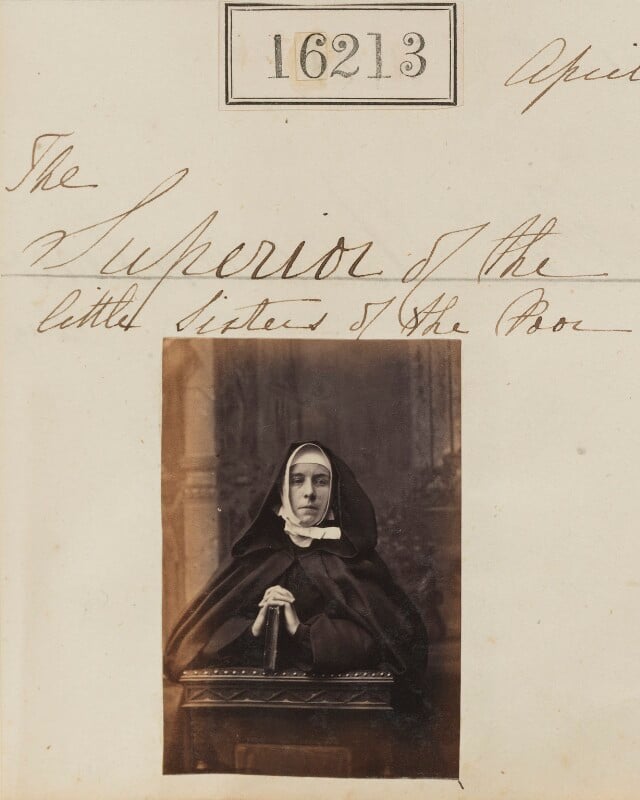 16213
April
The
Superior of the
little Sisters of the Poor